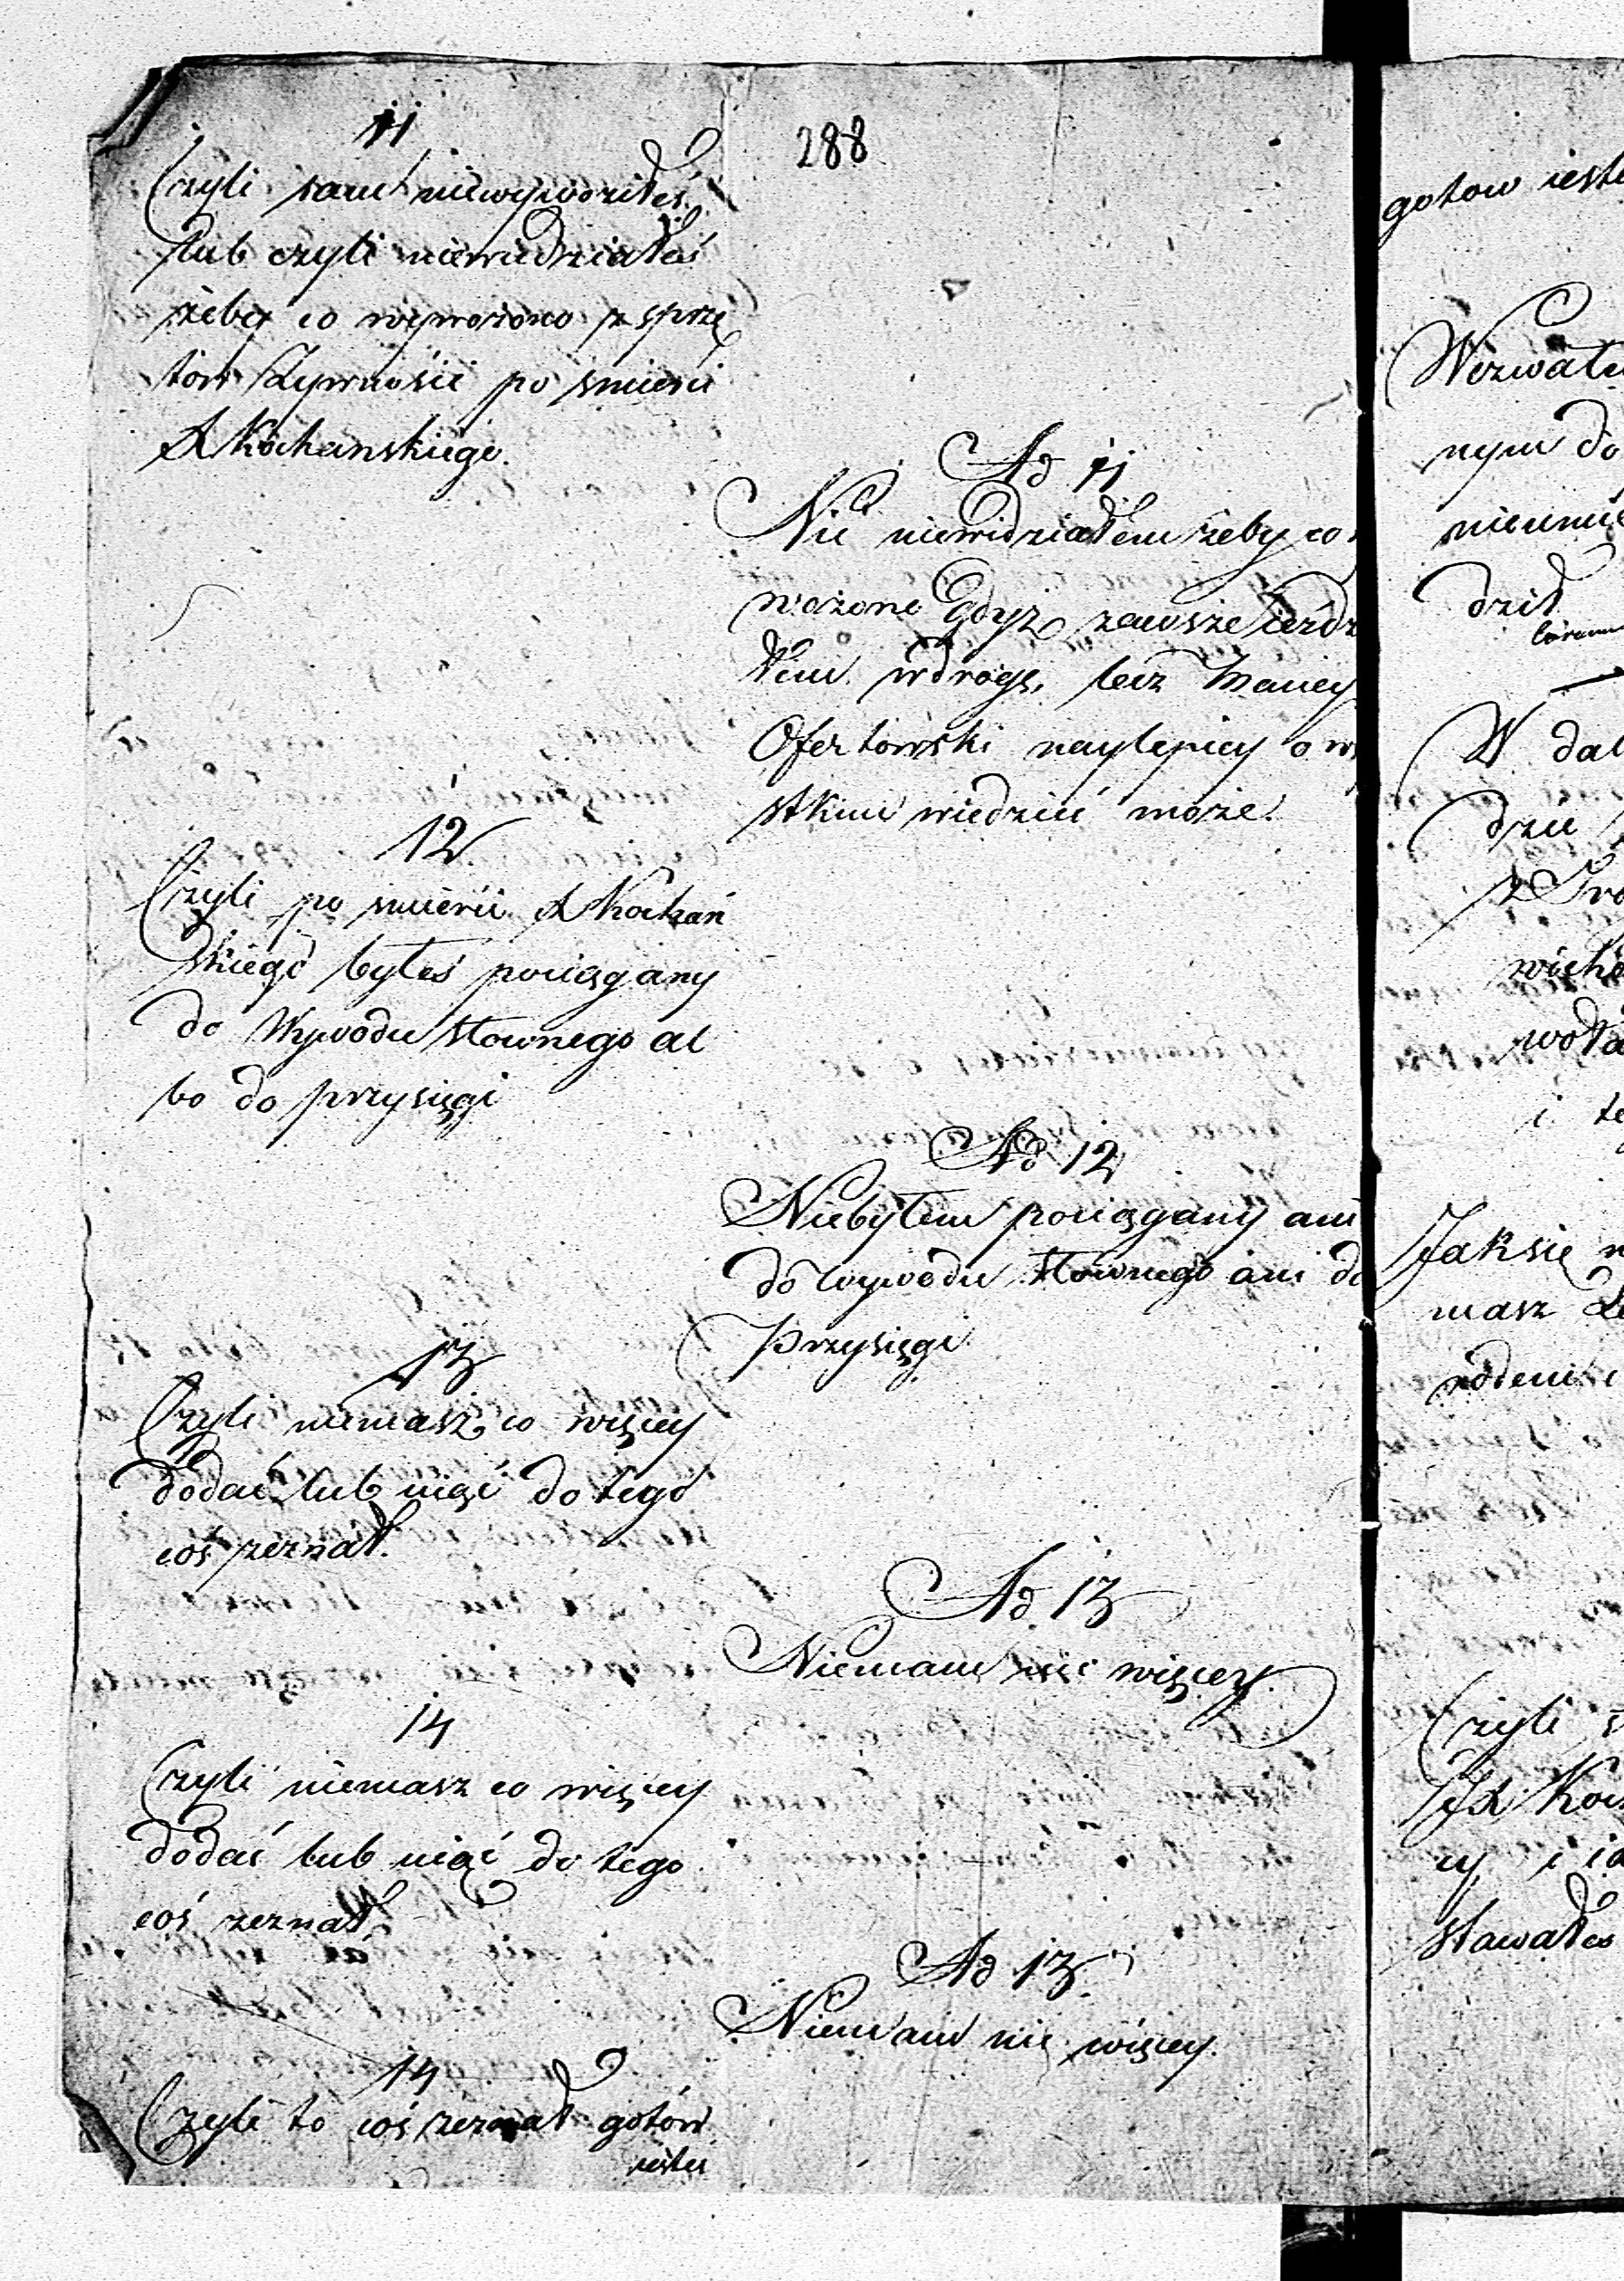 288
11
Czyli sam niewywoziłeś
lub czyli niewiedziałeś
żeby co wywożono z sprzę
tow Żywnosci po smierci
X Kochanskiego.
Ad 11
Nic niewidziałem żeby co
wożono Gdyż zawsze ieźdz
łem w drogę, lecz Maciey
Ofertowski naylepiey o w
stkim wiedzieć może.
12
Czyli po smierci X Kochań
skiego byłeś pociągany
do Wywodu słownego al
bo do przysięgi
Ad 12
Niebyłem pociągany ani
do wywodu słownego ani do
Przysięgi
13
Czyli niemasz co więcey
dodać lub uiąć do tego
coś zeznał.
Ad 13
Niemam nic więcey.
14
Czyli niemasz co więcey
dodać lub uiąć do tego
coś zeznał.
Ad 13.
Niemam nic więcey.
14
Czyli to coś zeznał gotów
iesteś
gotow ieste
Wezwał
nym do
nieumie
dził
W dal
dzie
i te
Jak się
masz
Czyli
JX Koc
cy i ia
stawałes